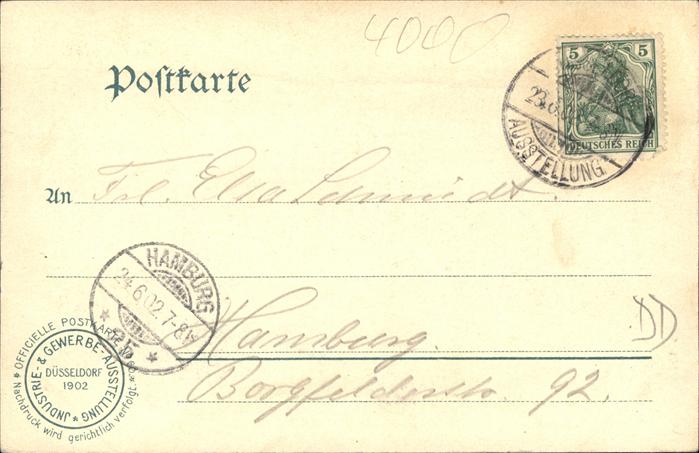 4000
Postkarte
5 5
DEUTSCHES REICH
AUSSTELLUNG
An Frl. Elsa Schmidt.
HAMBURG
24.6.02.7-8V.
Hamburg.
Borgfelderstr. 92.
DD
OFFICIELLE POSTKARTE
JNDUSTRIE- & GEWERBE-AUSSTELLUNG
DÜSSELDORF
1902
Nachdruck wird gerichtlich verfolgt.